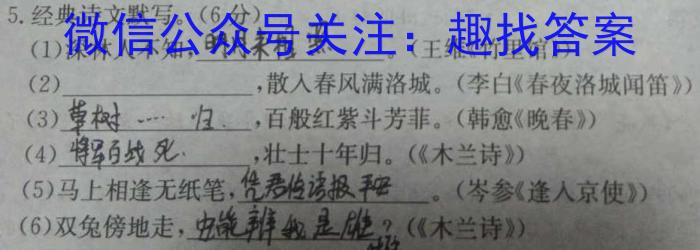 5.经典诗文默写。(6分)
微信公众号关注：趣找答案
(1)深林人不知,明月来相照。(王维《竹里馆》)
(2),散入春风满洛城。(李白《春夜洛城闻笛》)
(3)草树……归,百般红紫斗芳菲。(韩愈《晚春》)
(4)将军百战死,壮士十年归。(《木兰诗》)
(5)马上相逢无纸笔,凭君传语报平安。(岑参《逢入京使》)
(6)双兔傍地走,安能辨我是雄?(《木兰诗》)